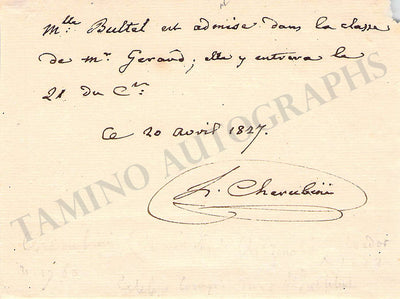 Mlle Bultel est admise dans la classe
de Mr. Gerard; elle y entrera le
21 du Ct.
Ce 20 avril 1827.
L. Cherubini
TAMINO AUTOGRAPHS